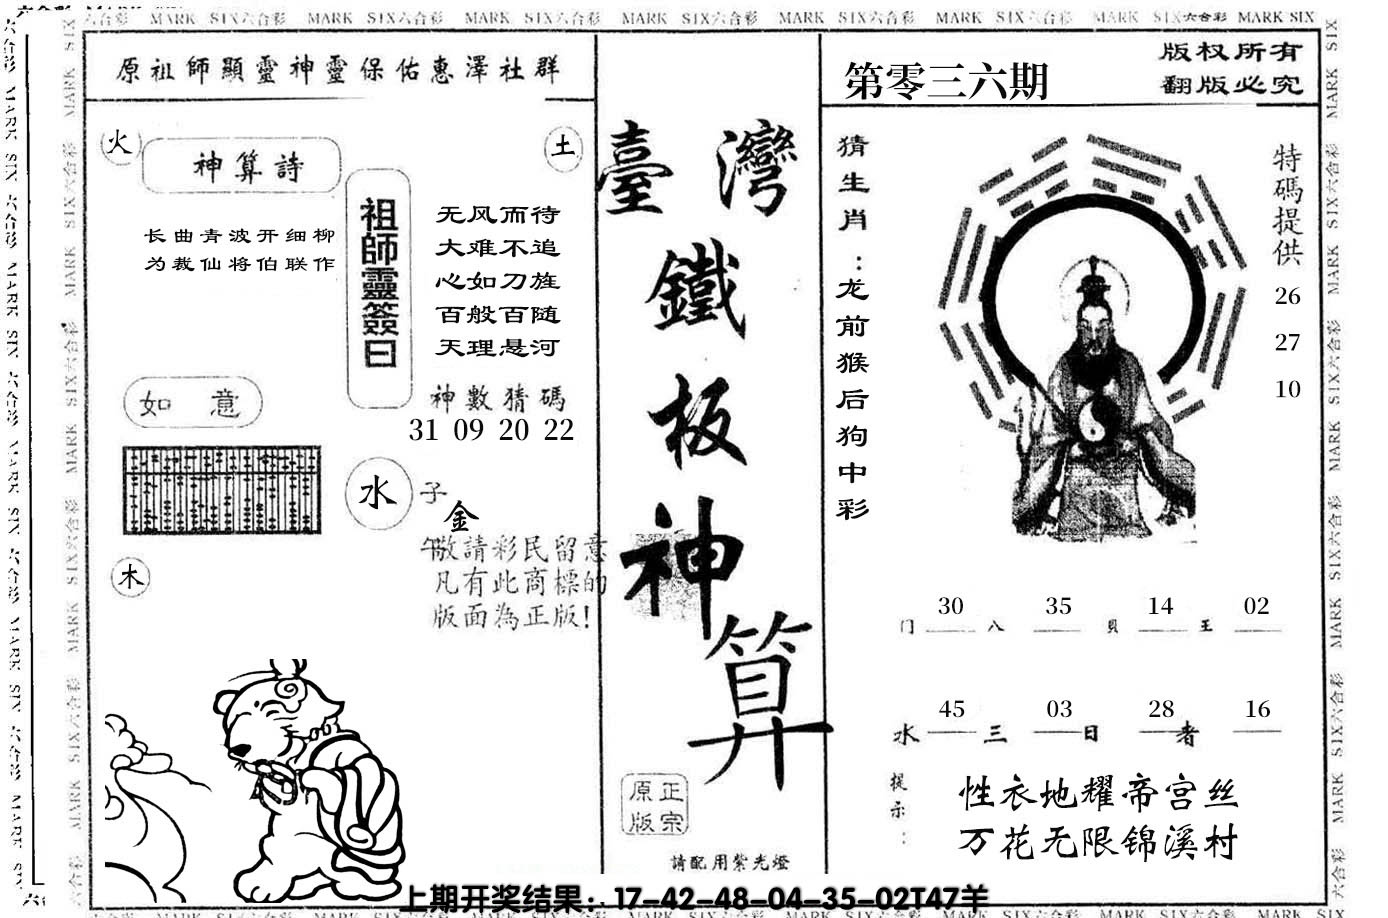 MARK SIX六合彩 MARK SIX六合彩 MARK SIX六合彩 MARK SIX六合彩 MARK SIX六合彩 MARK SIX六合彩 MARK SIX六合彩 MARK SIX
原祖師顯靈神靈保佑惠澤社群
火
土
神算詩
长曲青波开细柳
为裁仙将伯联作
祖師靈簽曰
无风而待
大难不追
心如刀旌
百般百随
天理悬河
神數猜碼
31 09 20 22
如意
水
子
金
午
敬請彩民留意
凡有此商標的
版面為正版!
木
臺灣
鐵
板
神
算
原正
版宗
請配用紫光燈
第零三六期
版权所有
翻版必究
猜生肖:龙前猴后狗中彩
特碼提供
26
27
10
30 35 14 02
门 八 貝 王
45 03 28 16
水 三 日 者
提示:
性衣地耀帝宫丝
万花无限锦溪村
上期开奖结果:17-42-48-04-35-02T47羊